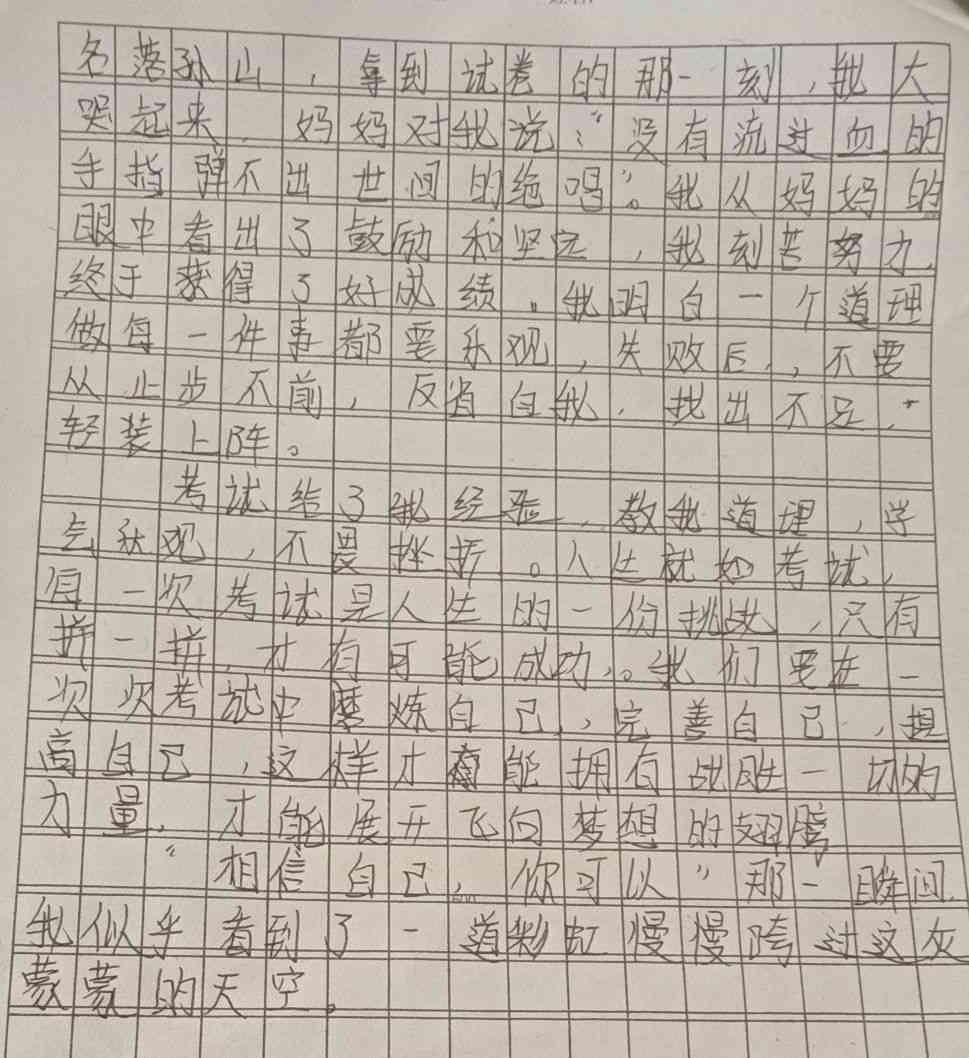 名落孙山，拿到试卷的那一刻，我大
哭起来，妈妈对我说：“没有流过血的
手指弹不出世间的绝唱”。我从妈妈的
眼中看出了鼓励和坚定，我刻苦努力，
终于获得了好成绩。我明白一个道理
做每一件事都要乐观，失败后，不要
从止步不前，反省自我，找出不足，
轻装上阵。
考试给了我经验，教我道理，学
会乐观，不畏挫折。人生就如考试，
每一次考试是人生的一份挑战，只有
拼一拼，才有可能成功。我们要在一
次次考试中磨炼自己，完善自己，提
高自己，这样才能拥有战胜一切的
力量，才能展开飞向梦想的翅膀
“相信自己，你可以”那一瞬间，
我似乎看到了一道彩虹慢慢跨过这灰
蒙蒙的天空。